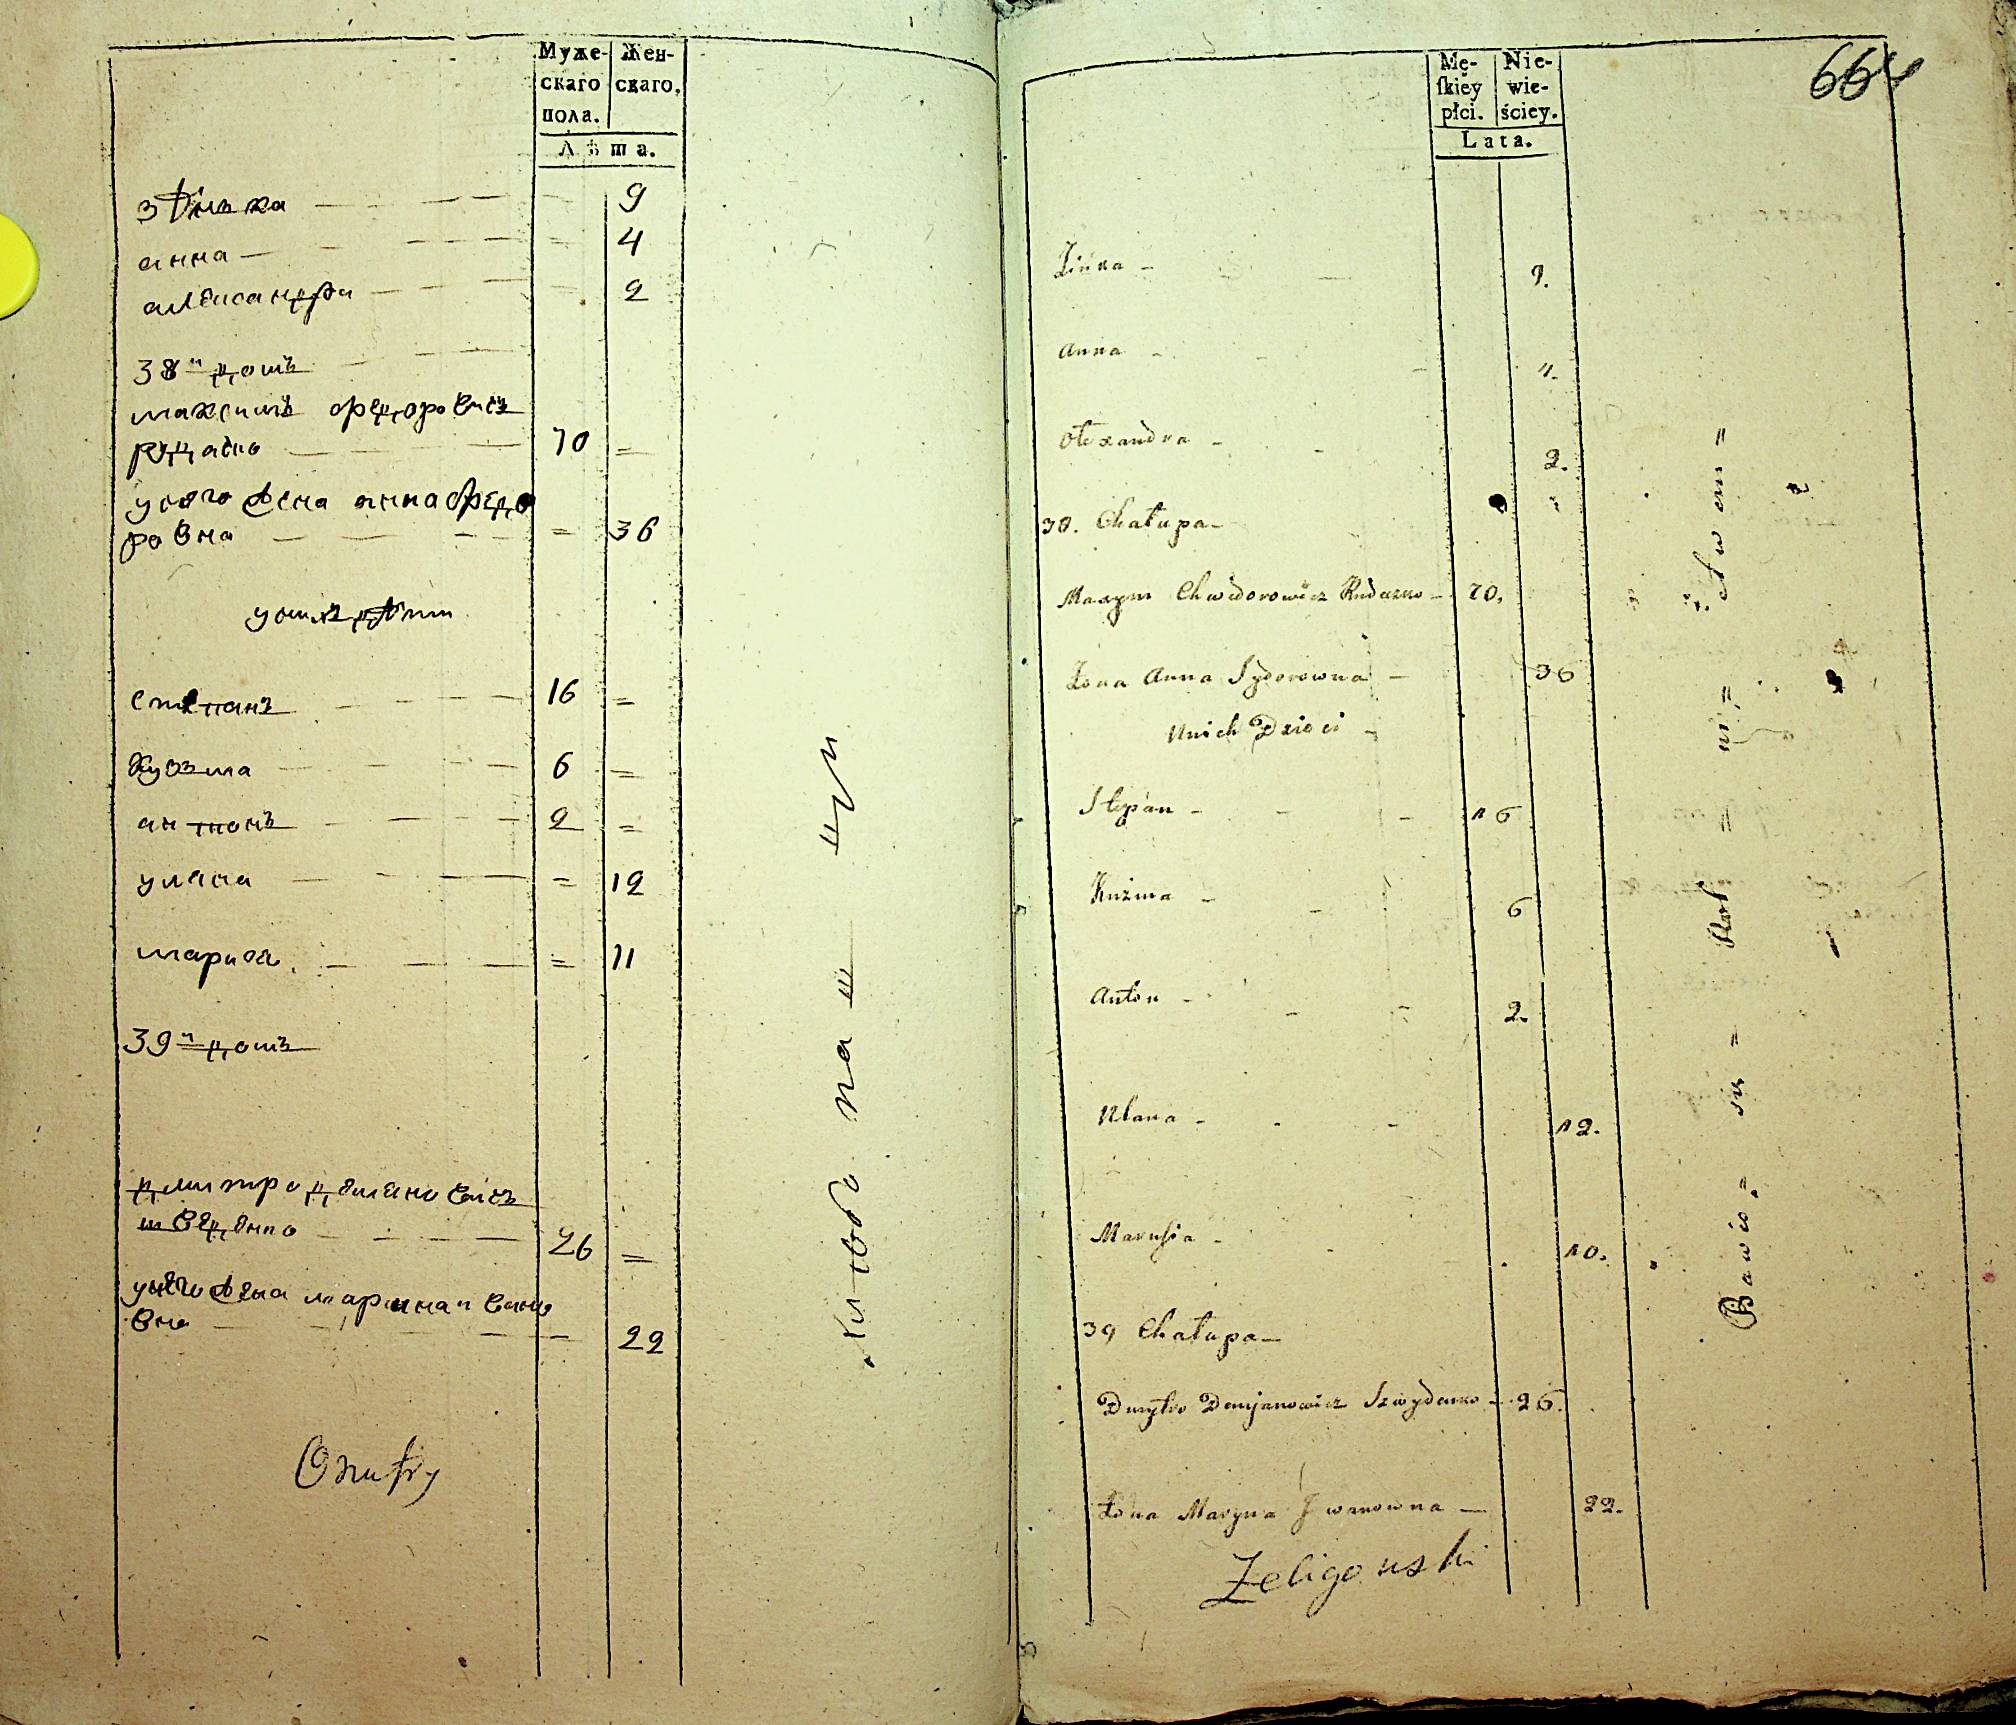 Муже-
скаго
пола.
Жен-
скаго.
Лѣта.
зѣнька 9
анна 4
александра 2
38й домъ
максимъ федоровичъ
рудько 70 =
унего жена анна федо
ровна = 36
уних дѣти
степанъ 16 =
кузма 6 =
антонъ 2 =
уляна = 12
маруся = 11
39й домъ
дмитро демяновичъ
шведенко 26 =
унего жена марина ивано
вна 22
Onufry
664
Mę-
ſkiey
płci.
Nie-
wie-
ściey.
Lata.
Zinka 9.
Anna 4.
Olexandra 2.
38. Chałupa
Maxym Chwedorowicz 70.
Żona Anna Sydorowna 36
Unich Dzieci
Stepan 16
Kuźma 6
Anton 2.
Ulana 12.
Marusia 10.
39 Chałupa
Dmytro Demjanowicz Szwydenko 26.
Żona Maryna Jwanowna 22.
Bawią = się = Rol = ni = ctwem =
Żeligowski